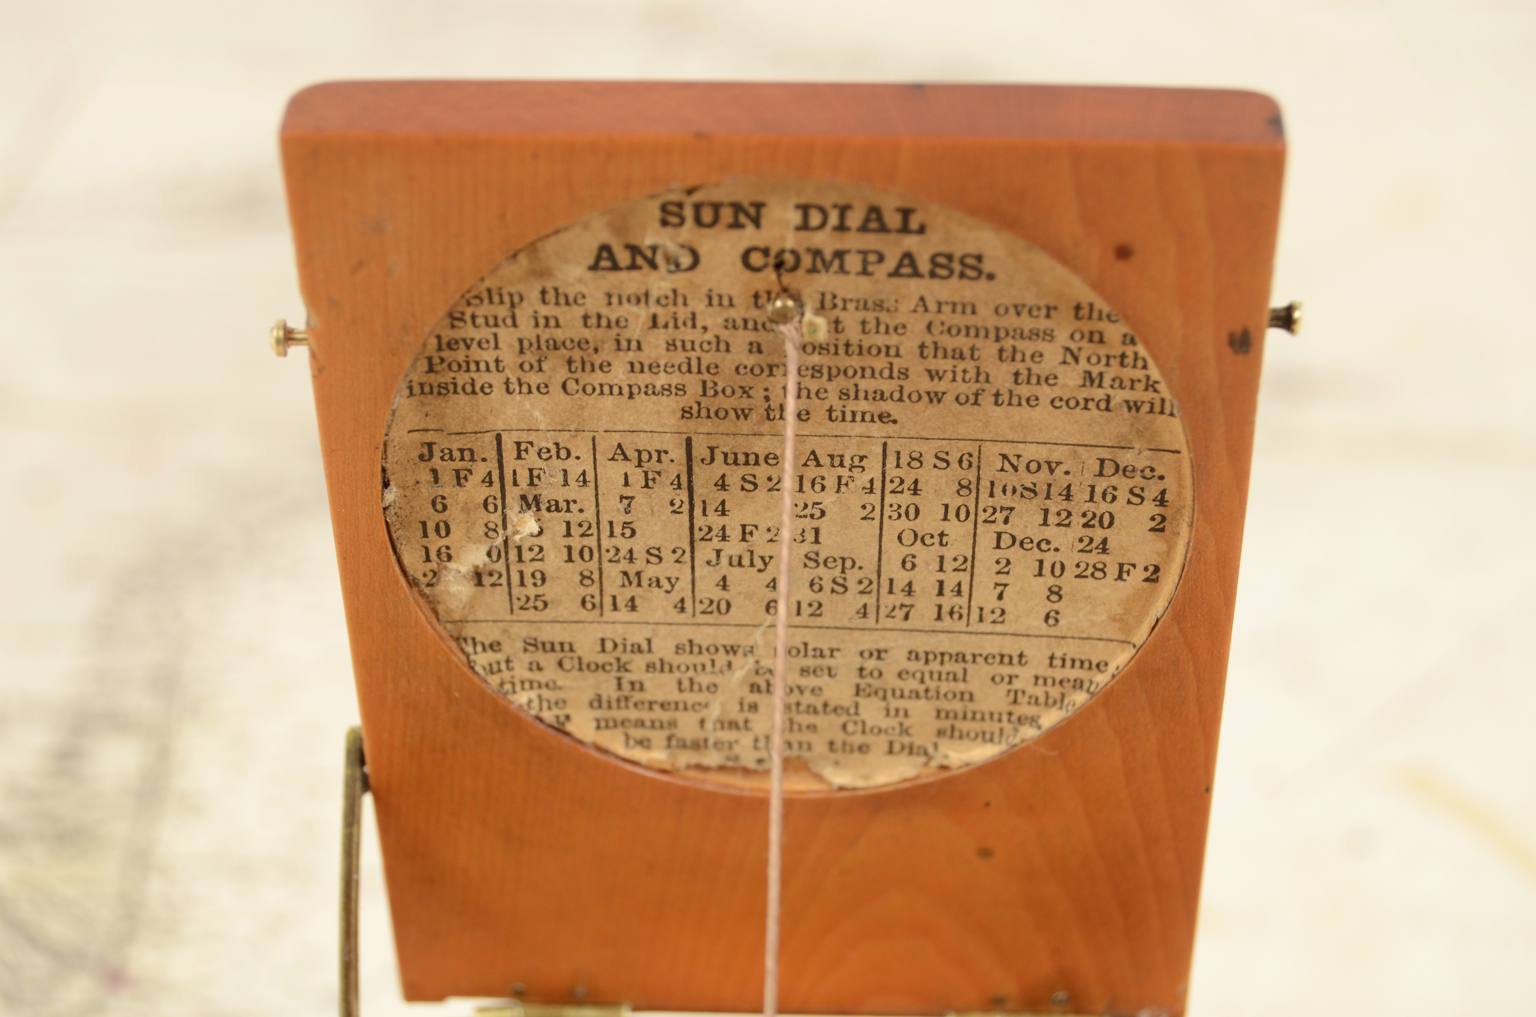 SUN DIAL
AND COMPASS.
Slip the notch in the Brass Arm over the
Stud in the Lid, and the Compass on a
level place, in such a position that the North
Point of the needle corresponds with the Mark
inside the Compass Box; the shadow of the cord will
show the time.
Jan. Feb. Apr. June Aug 18 S 6 Nov. Dec.
1 F 4 1 F 14 1 F 4 4 S 2 16 F 4 24 8 10 S 14 16 S 4
6 6 Mar. 7 2 14 25 2 30 10 27 12 20 2
10 8 12 15 24 F 2 31 Oct Dec. 24
16 0 12 10 24 S 2 July Sep. 6 12 2 10 28 F 2
12 19 8 May 4 4 6 S 2 14 14 7 8
25 6 14 4 20 6 12 4 27 16 12 6
The Sun Dial shows solar or apparent time,
but a Clock should be set to equal or mean
time. In the above Equation Table
the difference is stated in minutes
F means that the Clock should
be faster than the Dial